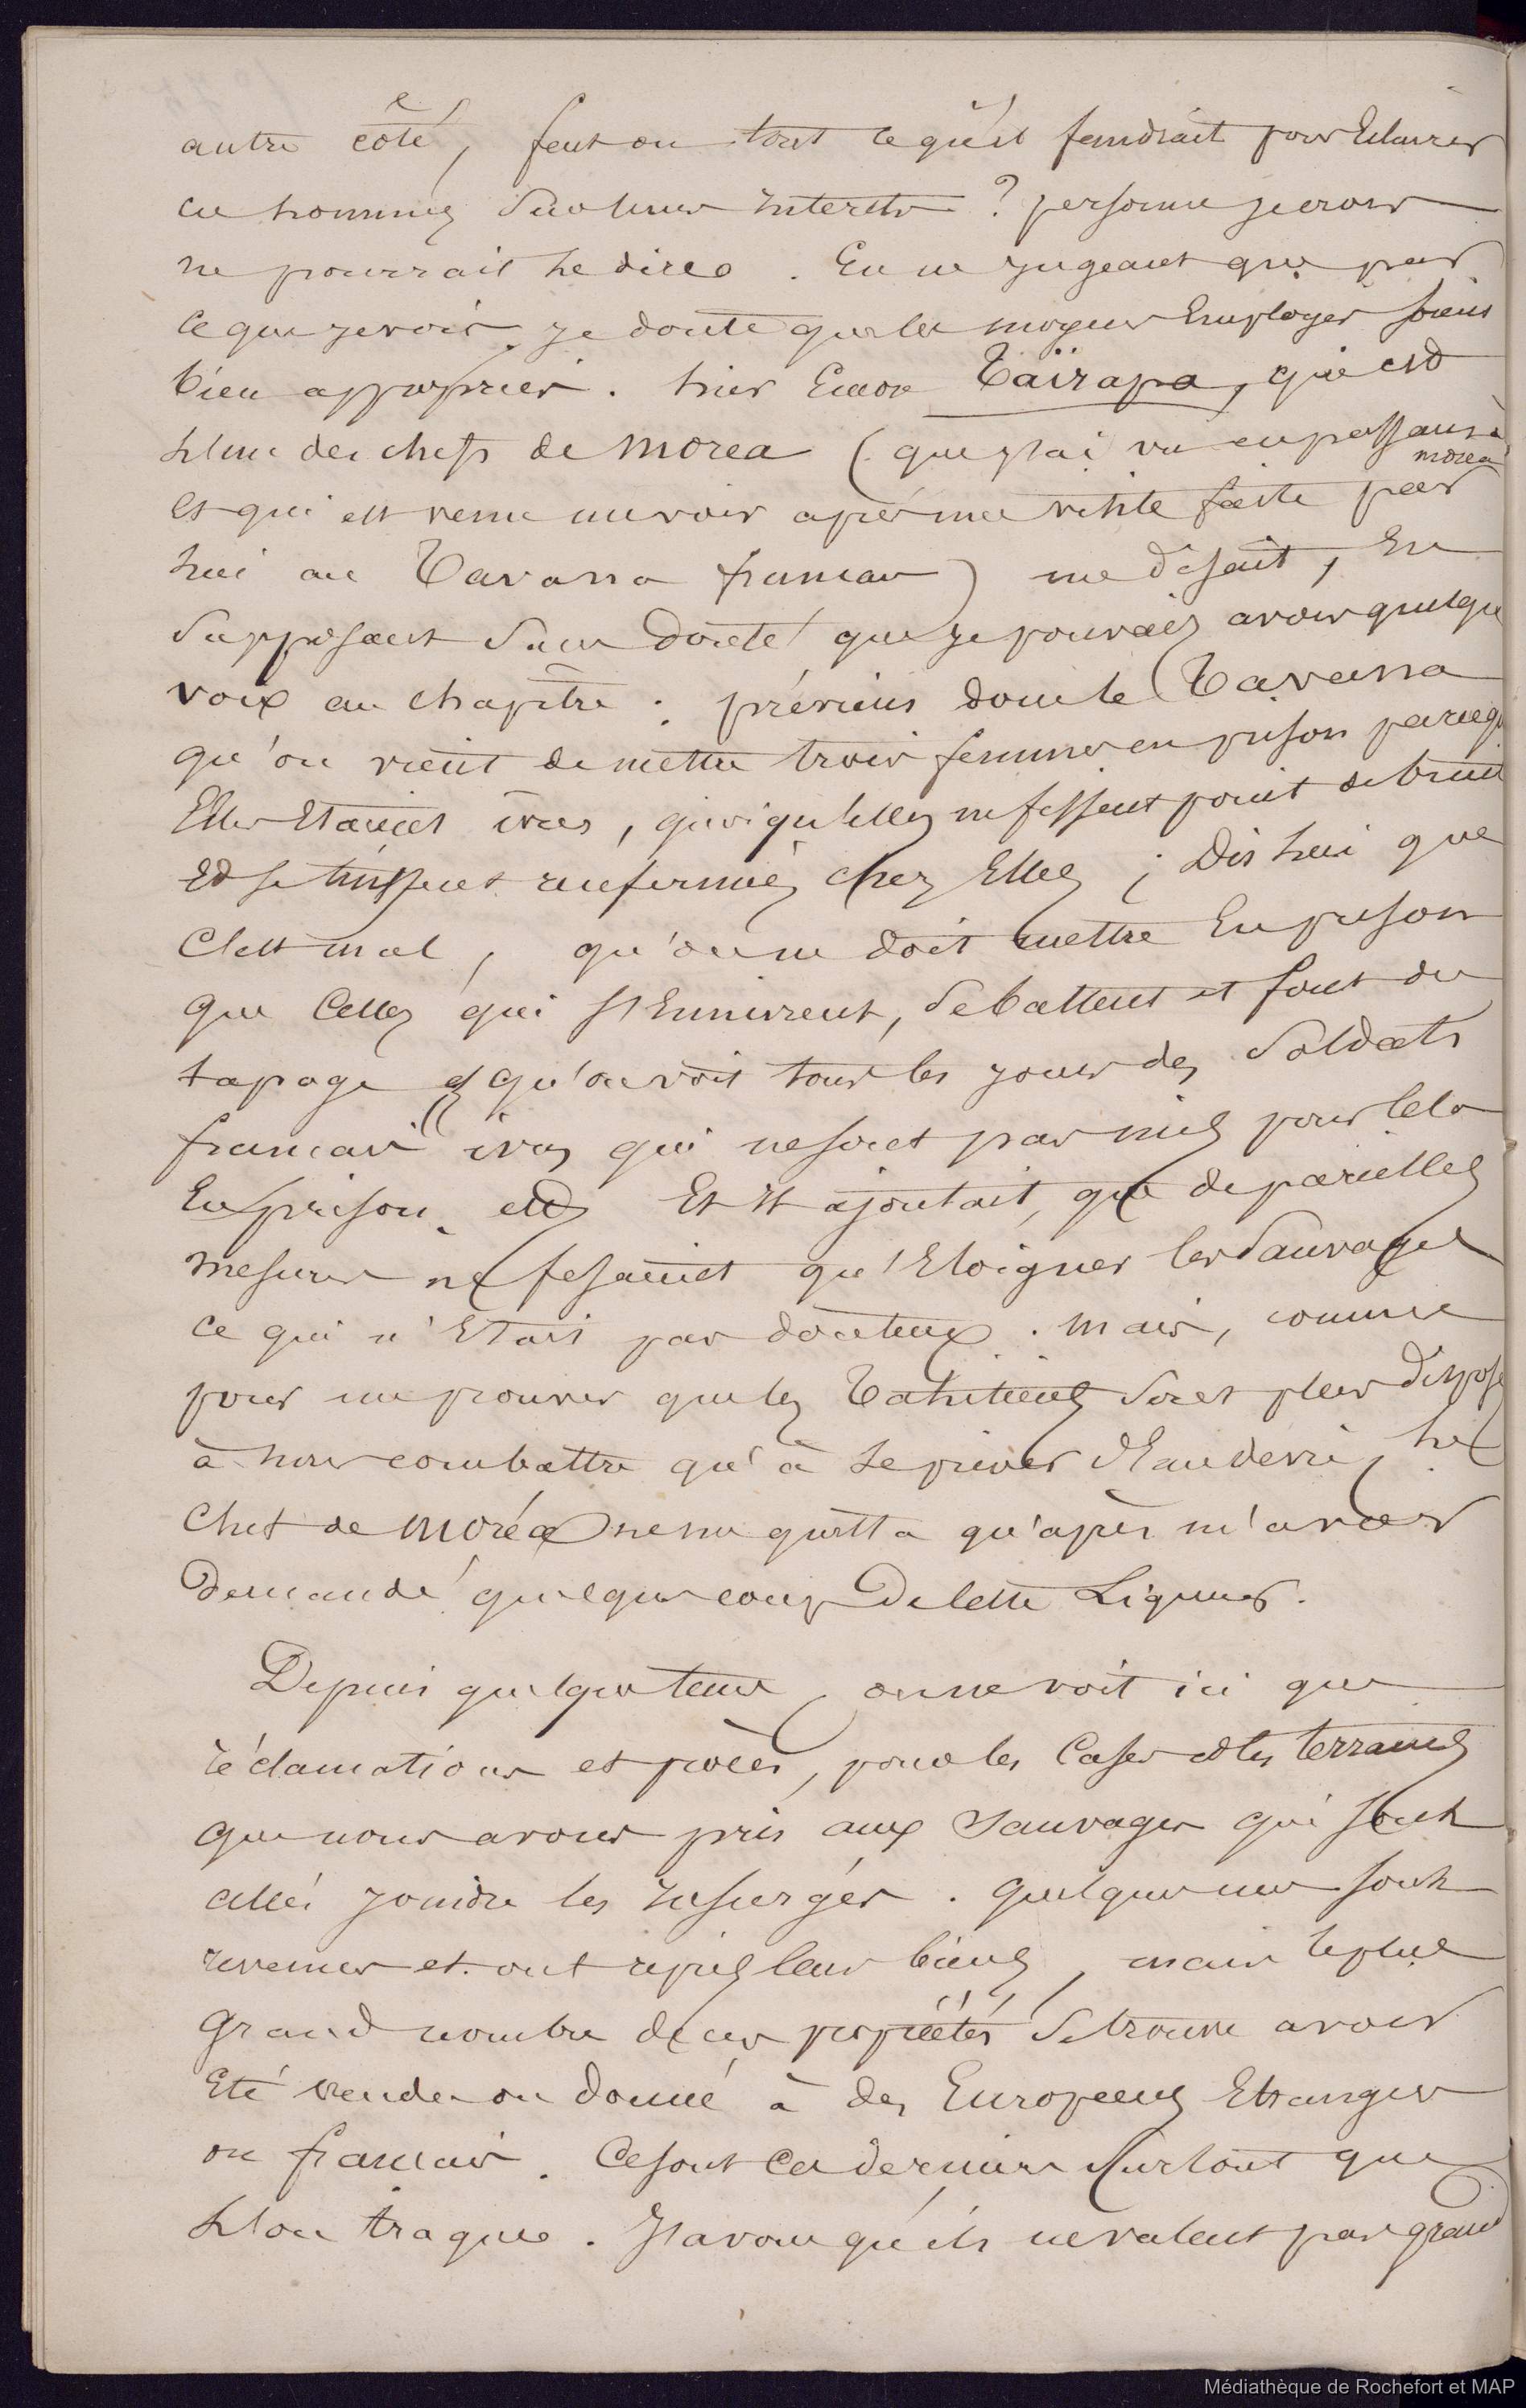 autre côté, fait on tout ce qu'il faudrait pour Eclairer
ces hommes sur leurs intérets ? personne je crois
ne pourrait le dire. En ne jugeant que par
ce que je vois, je doute que les moyens Employés soient
bien appropriés. hier Encore Taïrapa, qui est
l'un des chefs de Morea (que j'ai vu en passant à
morea
et qui est venu me voir après une visite faite par
lui au Tavana francais) me disait, En
supposant sans doute que je pouvais avoir quelque
voix au chapitre : préviens donc le Tavana
qu'on vient de mettre trois femmes en prison parcequ
Elles Etaient ivres, quoiqu'elles ne fissent point de bruit
Et se tinssent renfermés chez Elles ; Dis lui que
C'est mal, qu'on ne doit mettre En prison
que Celles qui s'Ennivrent, se battent et font du
tapage et qu'on voit tous les jours des Soldats
francais ivres qui ne sont pas mis pour Cela
En prison. etc Et Il ajoutait, que de pareilles
mesures ne fesaient qu'Eloigner les Sauvages
ce qui n'Etait pas douteux. Mais, comme
pour me prouver que les Tahitiens sont plus disposé
à nous combattre qu'à se priver d'Eau de vie, le
Chef de Moréa ne me quitta qu'après m'avoir
Demandé quelques coups De cette Liqueur.
Depuis quelques tems, on ne voit ici que
réclamations et procès, pour les Cases et les terrains
que nous avons pris aux Sauvages qui sont
allés joindre les Insurgés. quelques uns sont
revenus et ont repris leurs biens, mais le plus
grand nombre de ces propriétés se trouve avoir
Eté vendu ou donné à des Européens Etrangers
ou francais. Ce sont Ces derniers surtout que
L'on traque. J'avoue qu'ils ne valent pas grand
Médiathèque de Rochefort et MAP